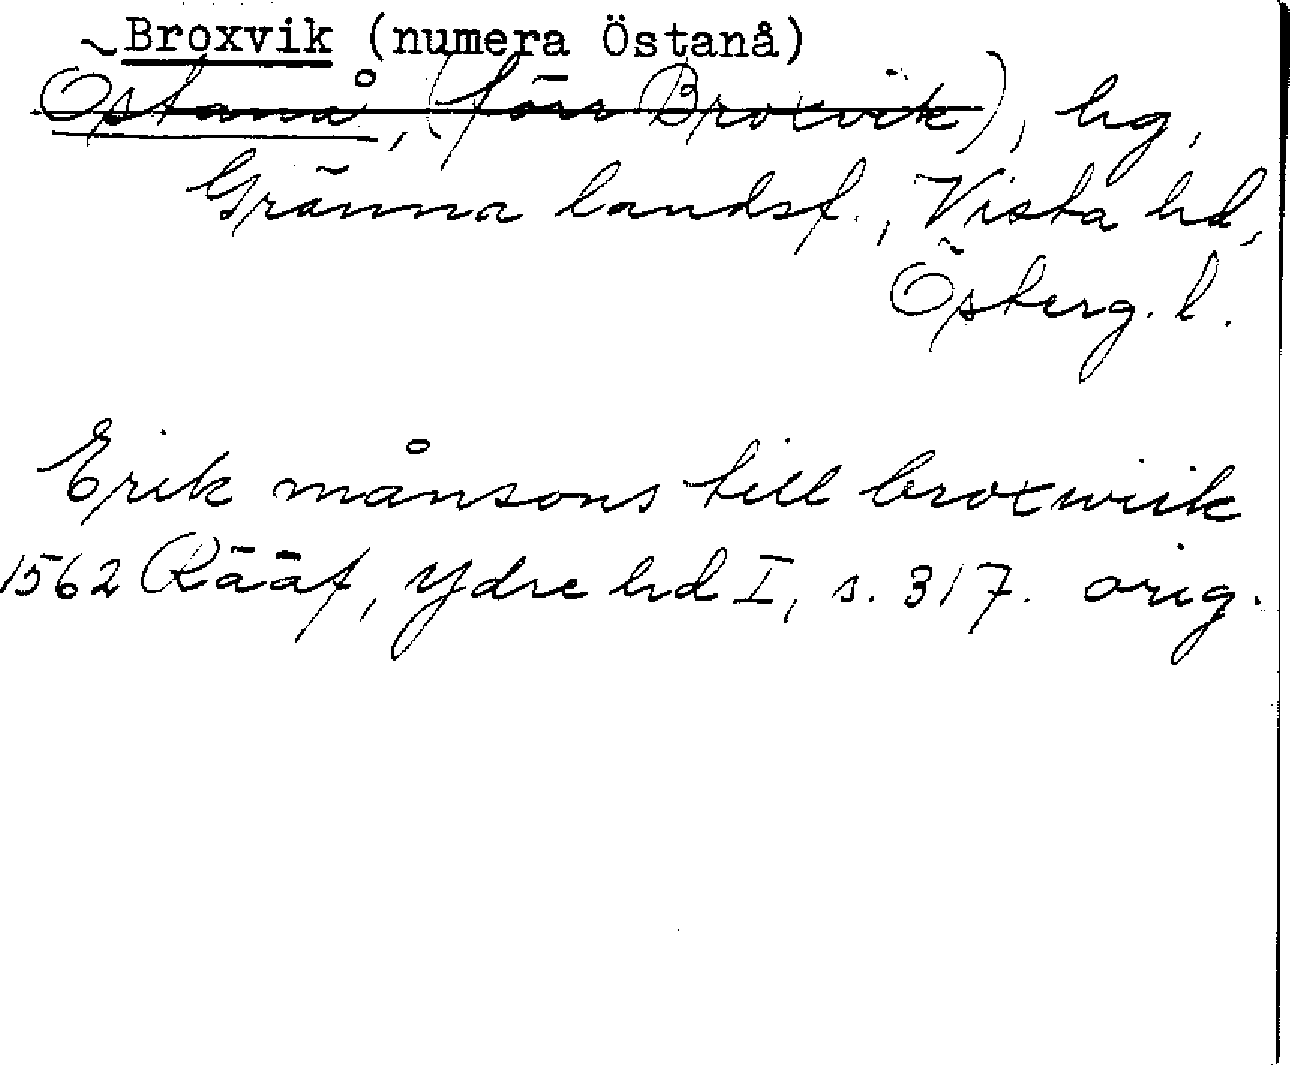 Broxvik (numera Östanå)
Östanå, (förr Broxvik), hg,
Gränna landsf., Vista hd,
Österg. l.
Erik månsons till broxwiik
1562 Rääf, Ydre hd I, s. 317. orig.